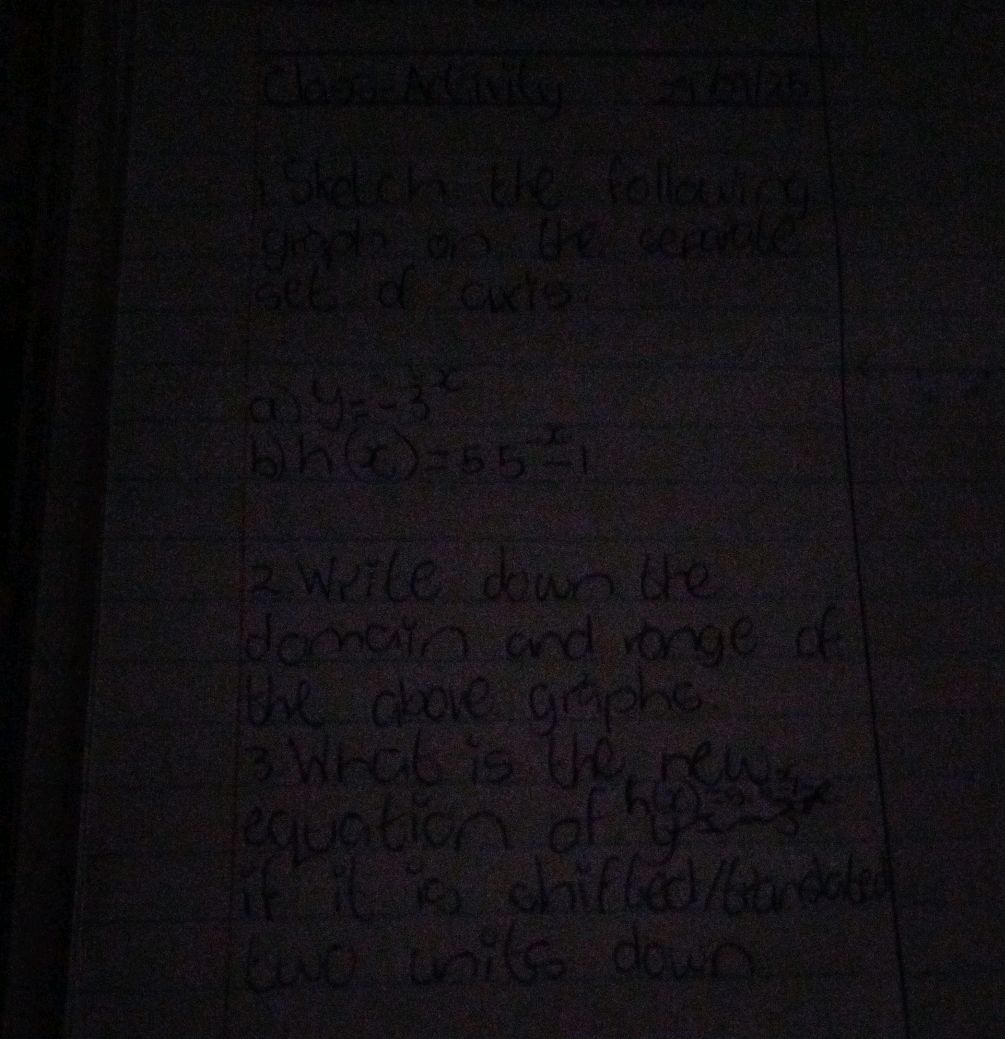 Class Activity
1. Sketch the following
graph on the separate
set of axis.
a) y = -3^x
b) h(x) = 5 5^-x - 1
2. Write down the
domain and range of
the above graphs
3. What is the new
equation of
if it is shifted/translated
two units down